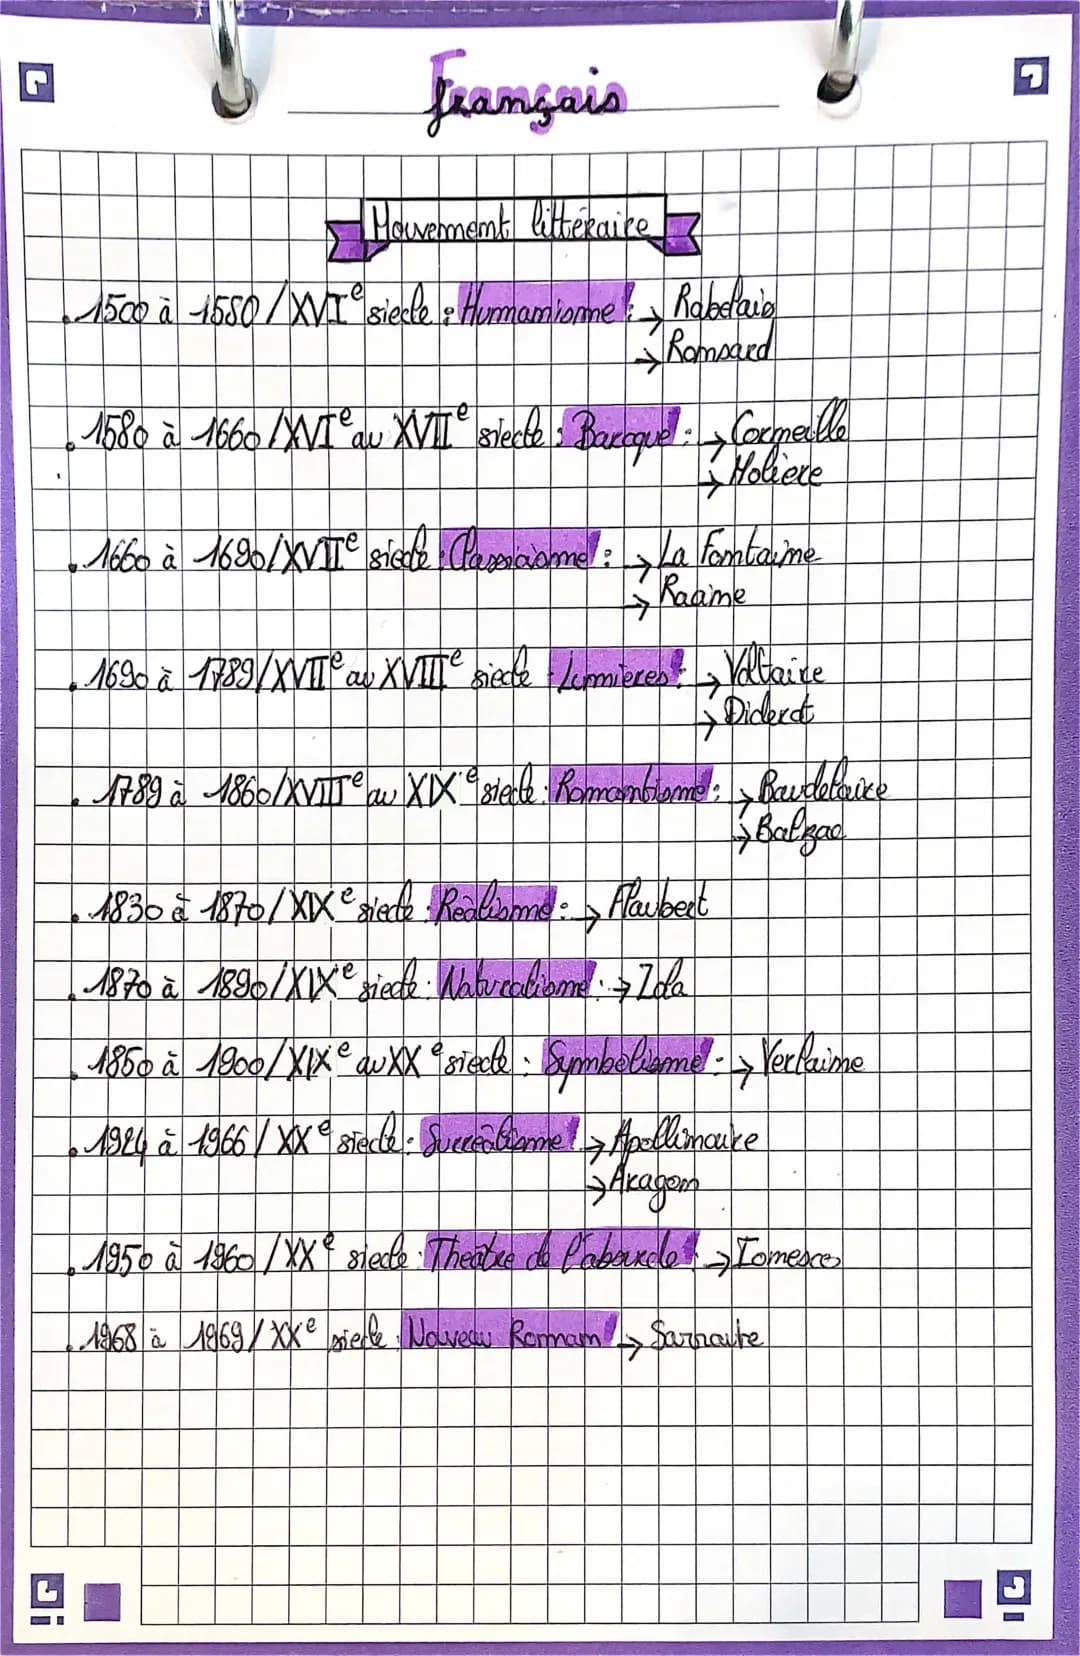 Français
Mouvement littéraire
. 1500 à 1550 / XVIe siecle : Humanisme : → Rabelais
→ Ronsard
. 1580 à 1660 / XVIe au XVIIe siecle : Baroque : → Corneille
→ Molière
. 1660 à 1690 / XVIIe siecle : Classicisme : → La Fontaine
→ Racine
. 1690 à 1789 / XVIIe au XVIIIe siecle : Lumières : → Voltaire
→ Diderot
. 1789 à 1860 / XVIIIe au XIXe siecle : Romantisme : → Baudelaire
→ Balzac
. 1830 à 1870 / XIXe siecle : Réalisme : → Flaubert
. 1870 à 1890 / XIXe siecle : Naturalisme : → Zola
. 1850 à 1900 / XIXe au XXe siecle : Symbolisme : → Verlaine
. 1924 à 1966 / XXe siecle : Surréalisme : → Apollinaire
→ Aragon
. 1950 à 1960 / XXe siecle : Theâtre de l'absurde : → Ionesco
. 1968 à 1969 / XXe siecle : Nouveau Romman : → Sarraute